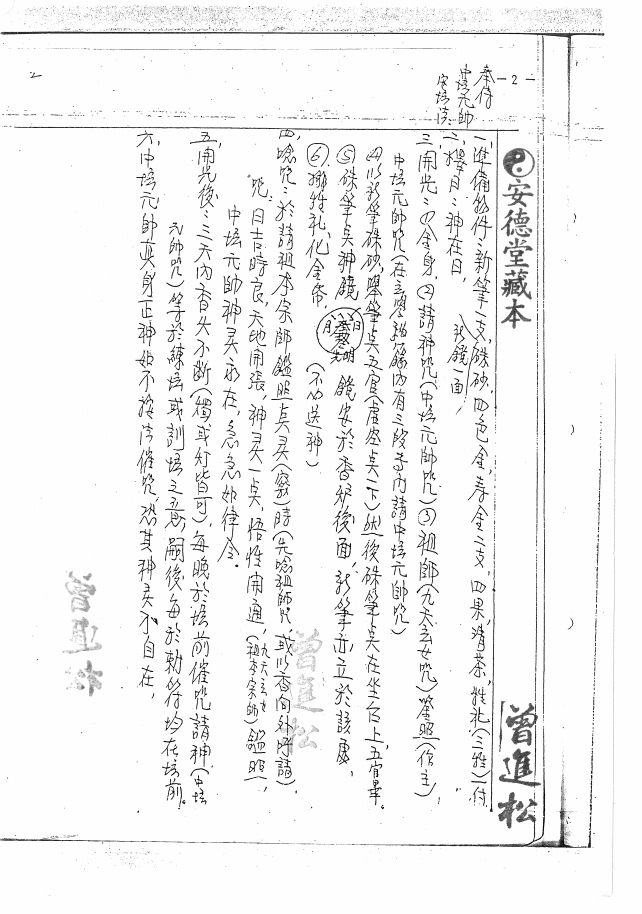 -2-
2
安德堂藏本
曾進松
奉侍
中壇元帥
安壇法
一、準備物件:新筆一支,硃砂,四色金,壽金二支,四果,清茶,牲礼(三牲)一付
新鏡一面,
二、擇日:神在日,
三、開光:四金身,②請神咒(中壇元帥咒)③祖師(九天玄女咒)鑒照(信主)
中壇元帥咒(在玄學秘錄內有三段寺內請中壇元帥咒)
④以新筆硃砂,舉筆点五官(虛空点一下)然後硃筆点在坐台上,五官畢。
⑤硃筆点神鏡 日月明 鏡安於香炉後面,新筆亦立於該處,
⑥擲牲礼,化金帛,(不必送神)
四、唸咒:於請祖本宗師鑑照点灵(竅)時(先唸祖師咒,或以香向外呼請),
咒:日吉時良,天地開張,神灵一点,悟性開通,(九天玄女
祖本宗師)鑑照,
中壇元帥神灵永在,急急如律令。
五、開光後:三天內香火不斷(燭或灯皆可)每晚於壇前催咒請神(中壇
元帥咒)等於練壇或訓壇之意,嗣後每於勅符均在壇前。
六、中壇元帥真身正神如不按法催咒,恐其神灵不自在,
曾進松
曾進松